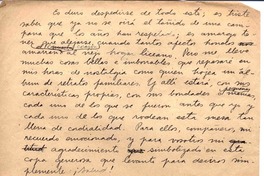 Es duro despedirse de todo esto; es triste
saber que ya no se oirá el tañido de una cam-
pana que los años han respetado; es amargo te-
ner que alejarse cuando tantos afectos
amarrado el viejo Pero me llevo
muchas cosas bellas e imborrables que desparramaré en
mis horas de nostalgia como quien hojea un ál-
bum de retrato familiares. Y allí estará, con sus
características propias, con sus bondades y
cada uno de los que se fueron antes que yo y
cada uno de los que rodean esta mesa tan
llena de cordialidad. Para ellos, compañeros, mi
recuerdo más cariñoso, y para ustedes mi
agradecimiento simbolizado en esta
copa generosa que levanto para deciros sim-
plemente: ¡Salud!